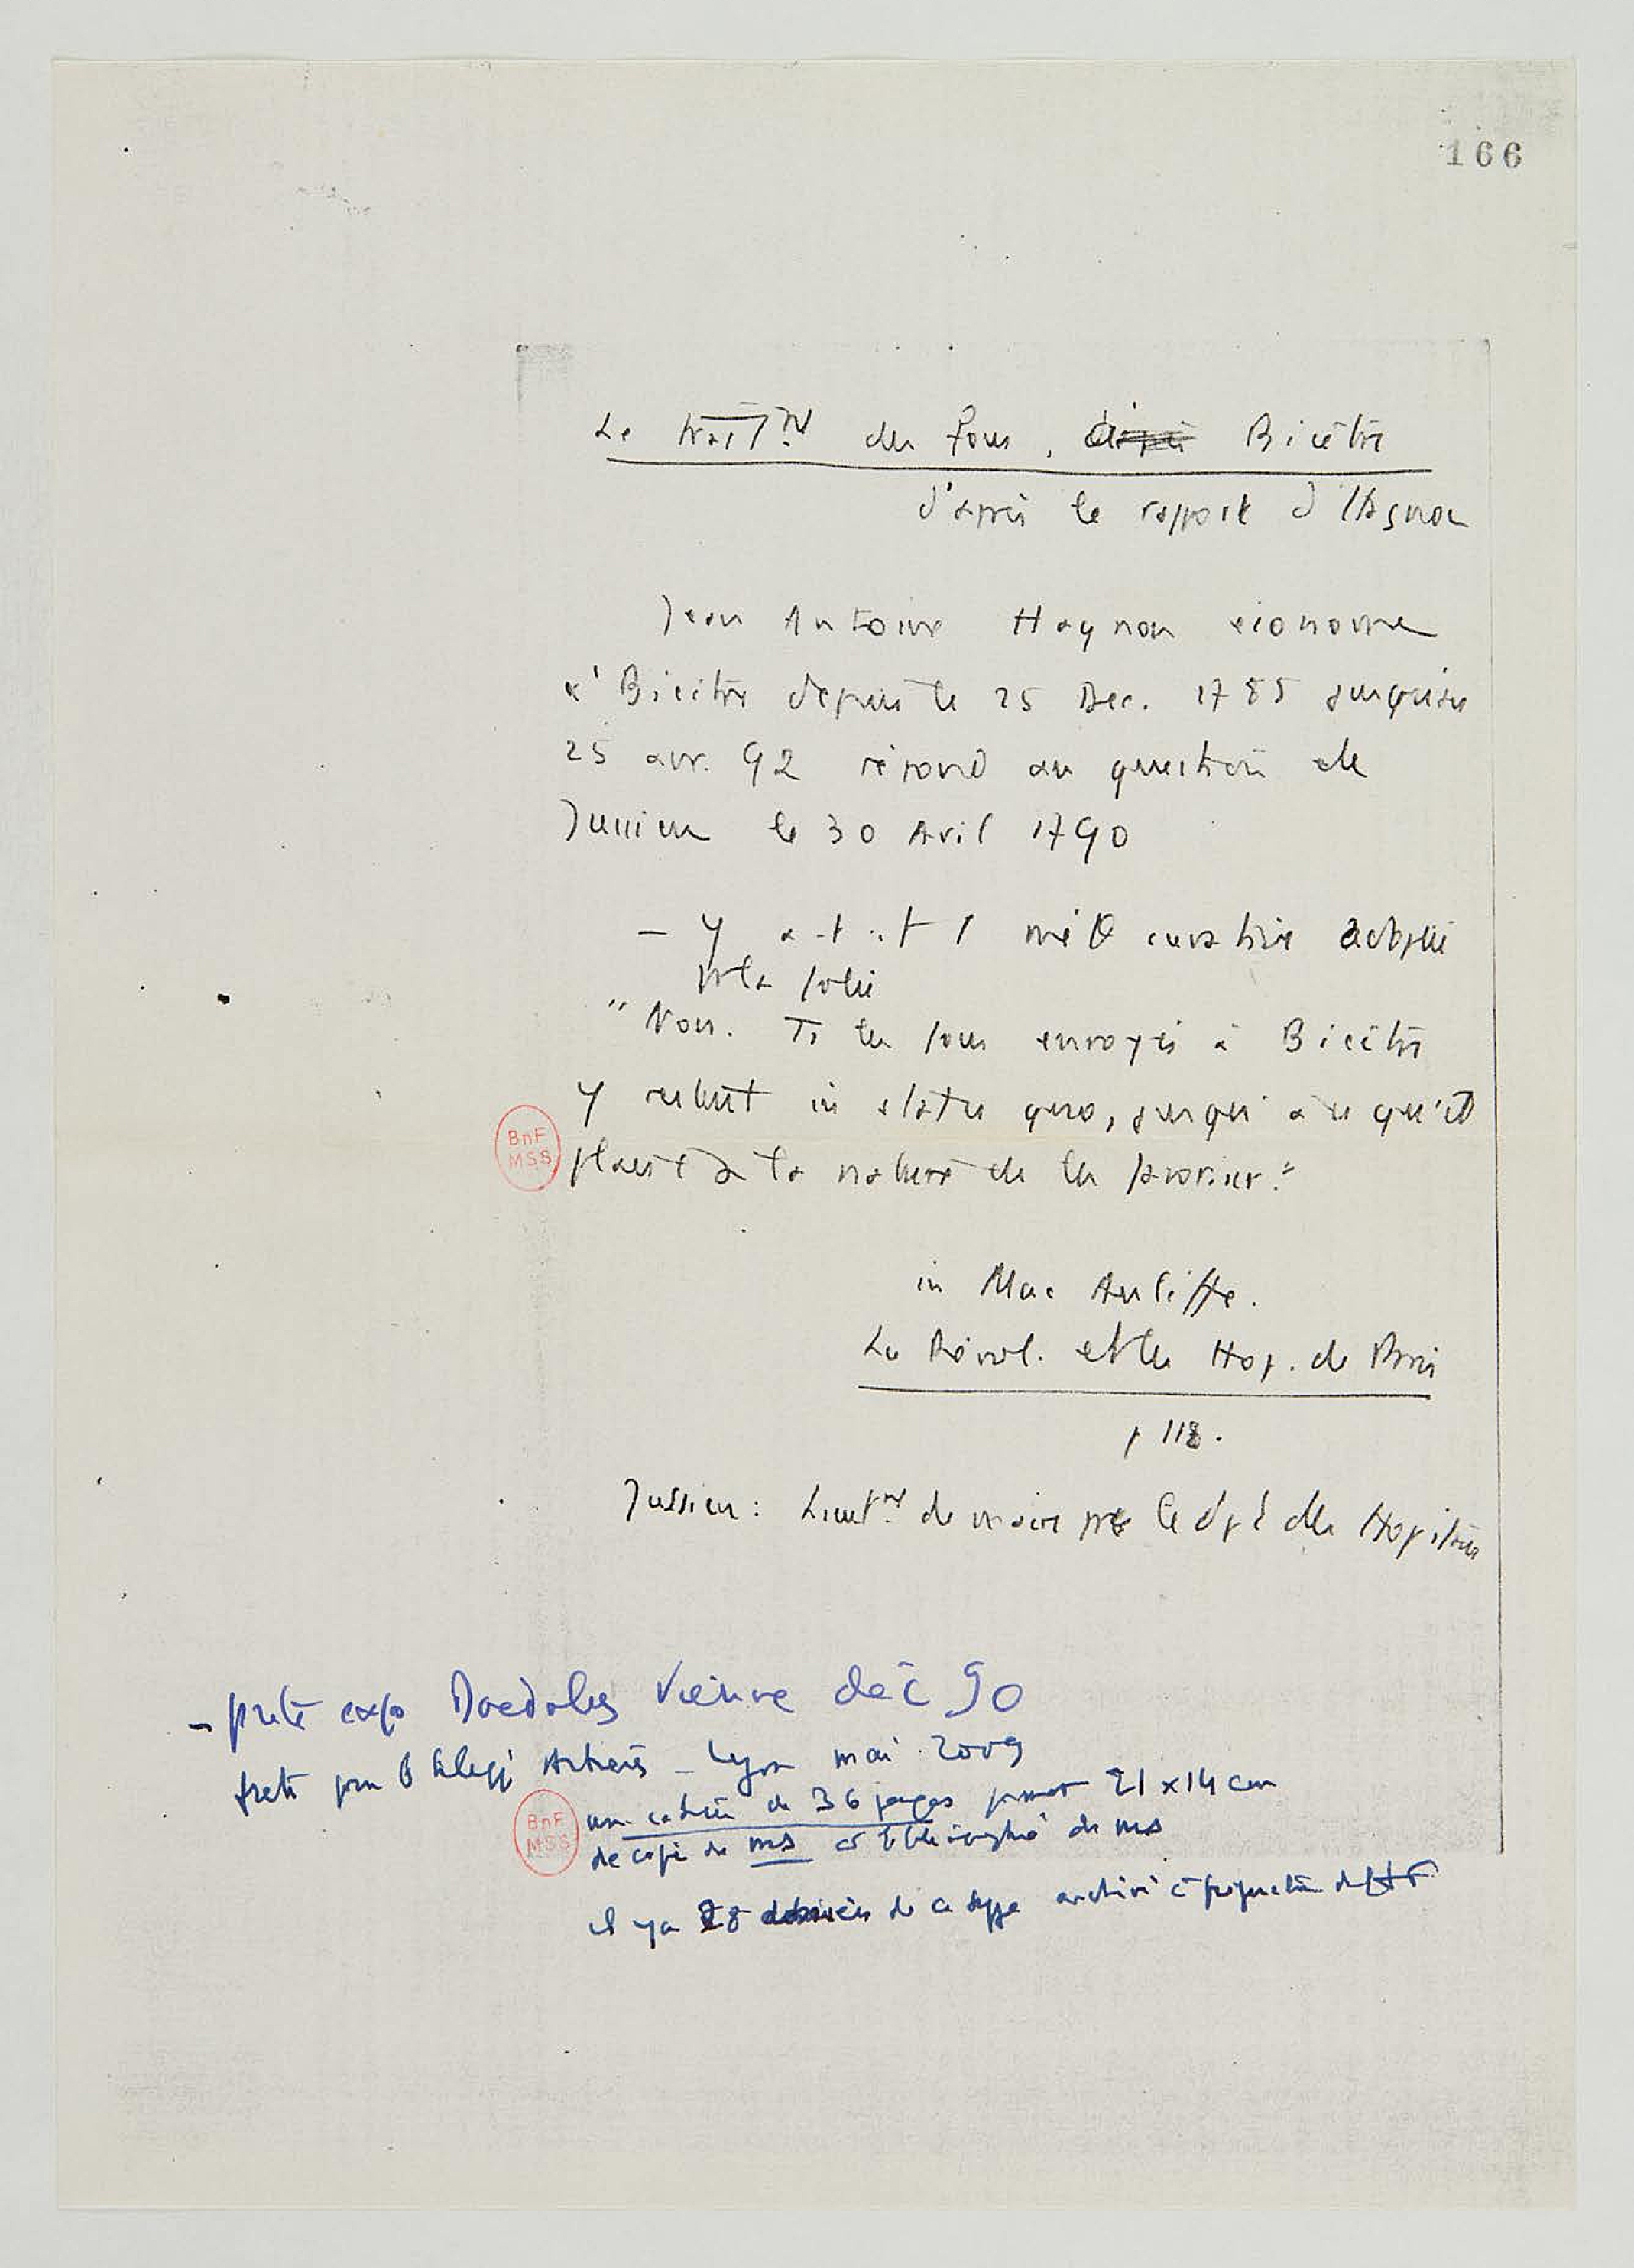 166
Le trait.nt des fous, Bicêtre
d'après le rapport d'Hagnon
Jean Antoine Hagnon économe
à Bicêtre depuis le 25 Dec. 1785 jusqu'au
25 avr. 92 répond au question de
Jussieu le 30 Avril 1790
- Y a-t-il 1 méθ curative adoptée
pr la folie
"Non. Ts les fous envoyés à Bicêtre
y restent in statu quo, jusqu'à ce qu'il
plaise à la nature de les favoriser."
BnF
MSS
in Mac Auliffe.
La Révol. et les Hop. de Paris
p 118.
Jussieu: Lieut.nt de maire pr le dpt des Hopitaux
- prêté expo Daedalus Vienne déc 90
prêté pour Artières - Lyon mai 2009
BnF
MSS
un cahier de 36 pages format 21 x 14 cm
de copie de ms et bibliographie de ms
il y a 28 de ce type